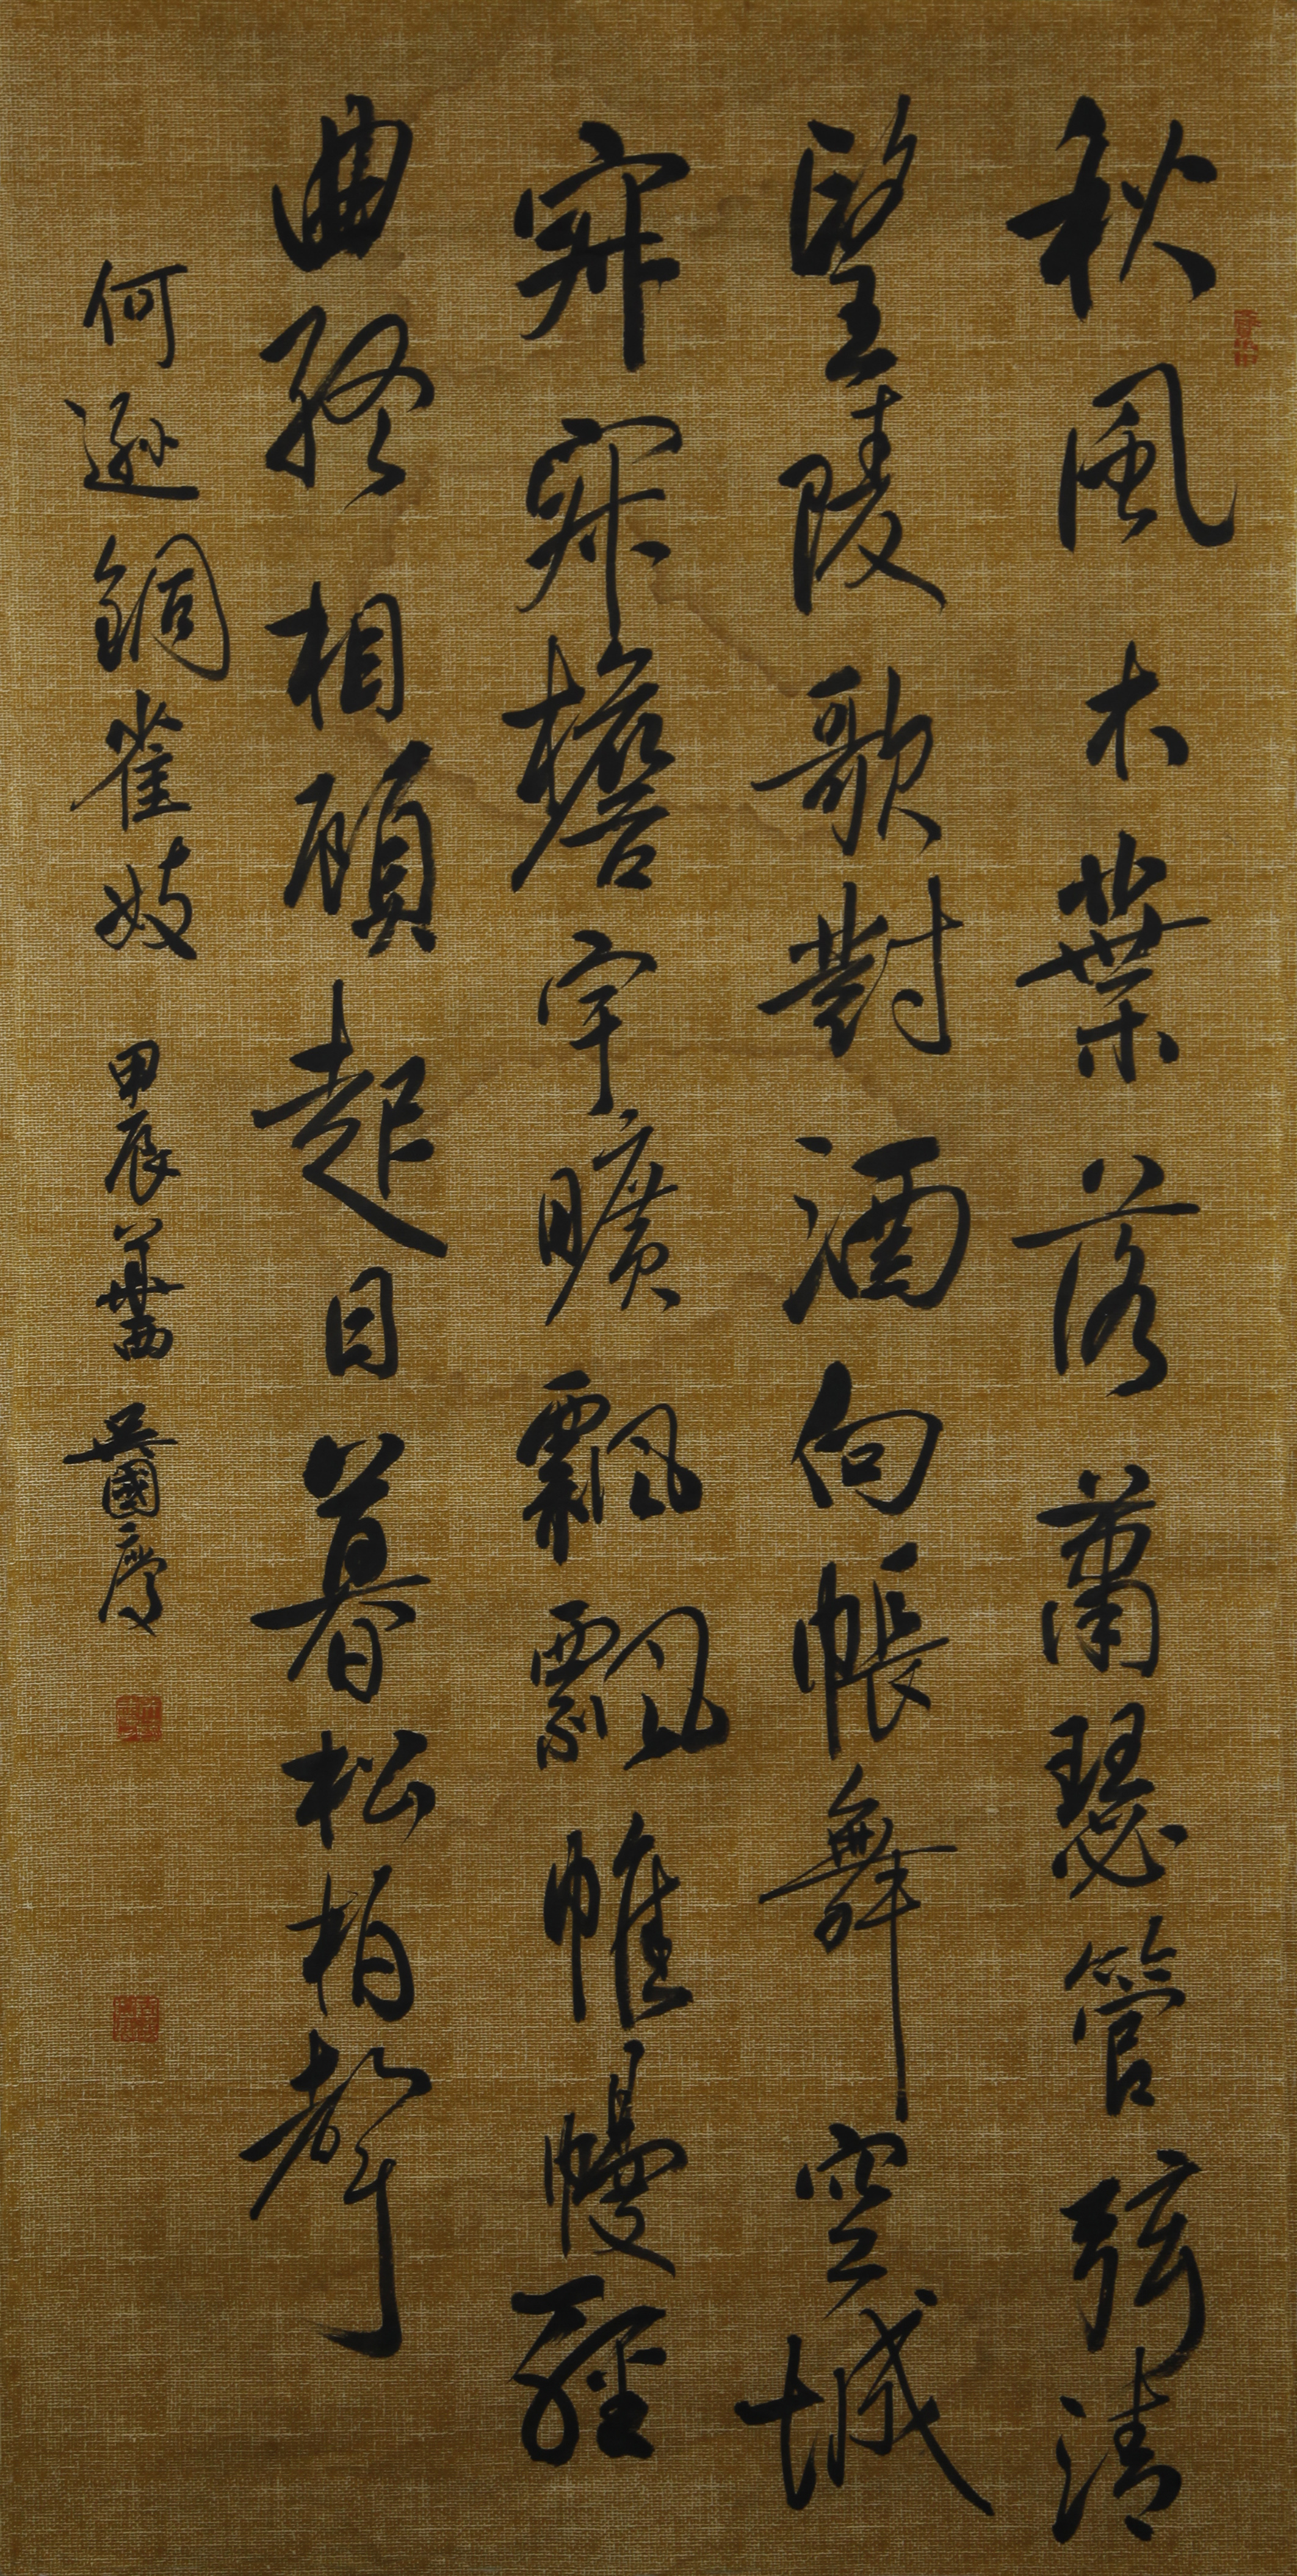 秋風木葉落蕭瑟管弦清
望陵歌對酒向帳舞空城
寂寂檐宇曠飄飄帷幔輕
曲終相顧起日暮松柏聲
何遜銅雀妓 甲辰華西 吳國慶